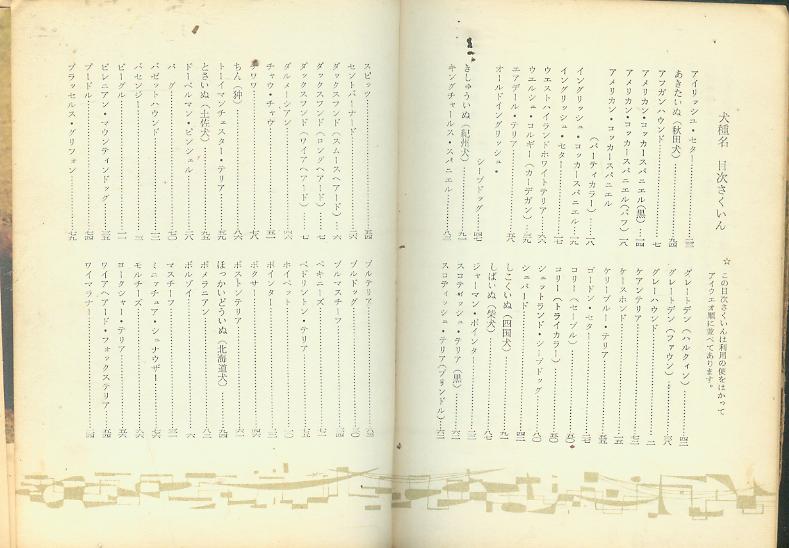 犬種名　目次さくいん
☆　この目次さくいんは利用の便をはかって
アイウエオ順に並べてあります。
アイリッシュ・セター
あきたいぬ(秋田犬)……九四
アフガンハウンド……七
アメリカン・コッカースパニエル(黒)……一四
アメリカン・コッカースパニエル(バフ)……一八
アメリカン・コッカースパニエル
(パーティカラー)……一八
イングリッシュ・コッカースパニエル
イングリッシュ・セター
ウエストハイランドホワイトテリア
ウエルシ・コルギー(カーデガン)
エアデール・テリア
オールドイングリッシュ・
シープドッグ
きしゅういぬ(紀州犬)……九一
キングチャールス・スパニエル……八三
グレートデン(ハルクィン)……四二
グレートデン(ファウン)
グレーハウンド……二
ケアンテリア……七三
ケースホンド
ケリーブルー・テリア
ゴードン・セター
コリー(セーブル)
コリー(トライカラー)
シェットランド・シープドッグ……八〇
シェパード
しこくいぬ(四国犬)……九一
しばいぬ(柴犬)……八七
ジャーマン・ポインター
スコティッシュ・テリア(黒)
スコティッシュ・テリア(ブリンドル)……六二
スピッツ
セントバーナード
ダックスフンド(スムースヘアード)
ダックスフンド(ロングヘアード)
ダックスフンド(ワイアヘアード)
ダルメーシアン
チャウ・チャウ
チワワ……七八
ちん(狆)……八六
トーイマンチェスター・テリア
とさいぬ(土佐犬)
ドーベルマン・ピンシェル
パーグ……七〇
バセンジー
バゼットハウンド
ビーグル……一一
ピレニアン・マウンティンドッグ
プードル……七四
ブラッセルス・グリフォン……七九
ブルテリア
ブルドッグ
ブルマスチーフ
ペキニーズ
ベドリントン・テリア
ホイペット
ポインター
ボクサー
ボストンテリア
ほっかいどういぬ(北海道犬)……九四
ポメラニアン……八二
ボルゾイ……六
マスチーフ
ミニッチュア・シュナウザー
モルチーズ
ヨークシャー・テリア
ワイアヘアード フォックステリア
ワイマラナー